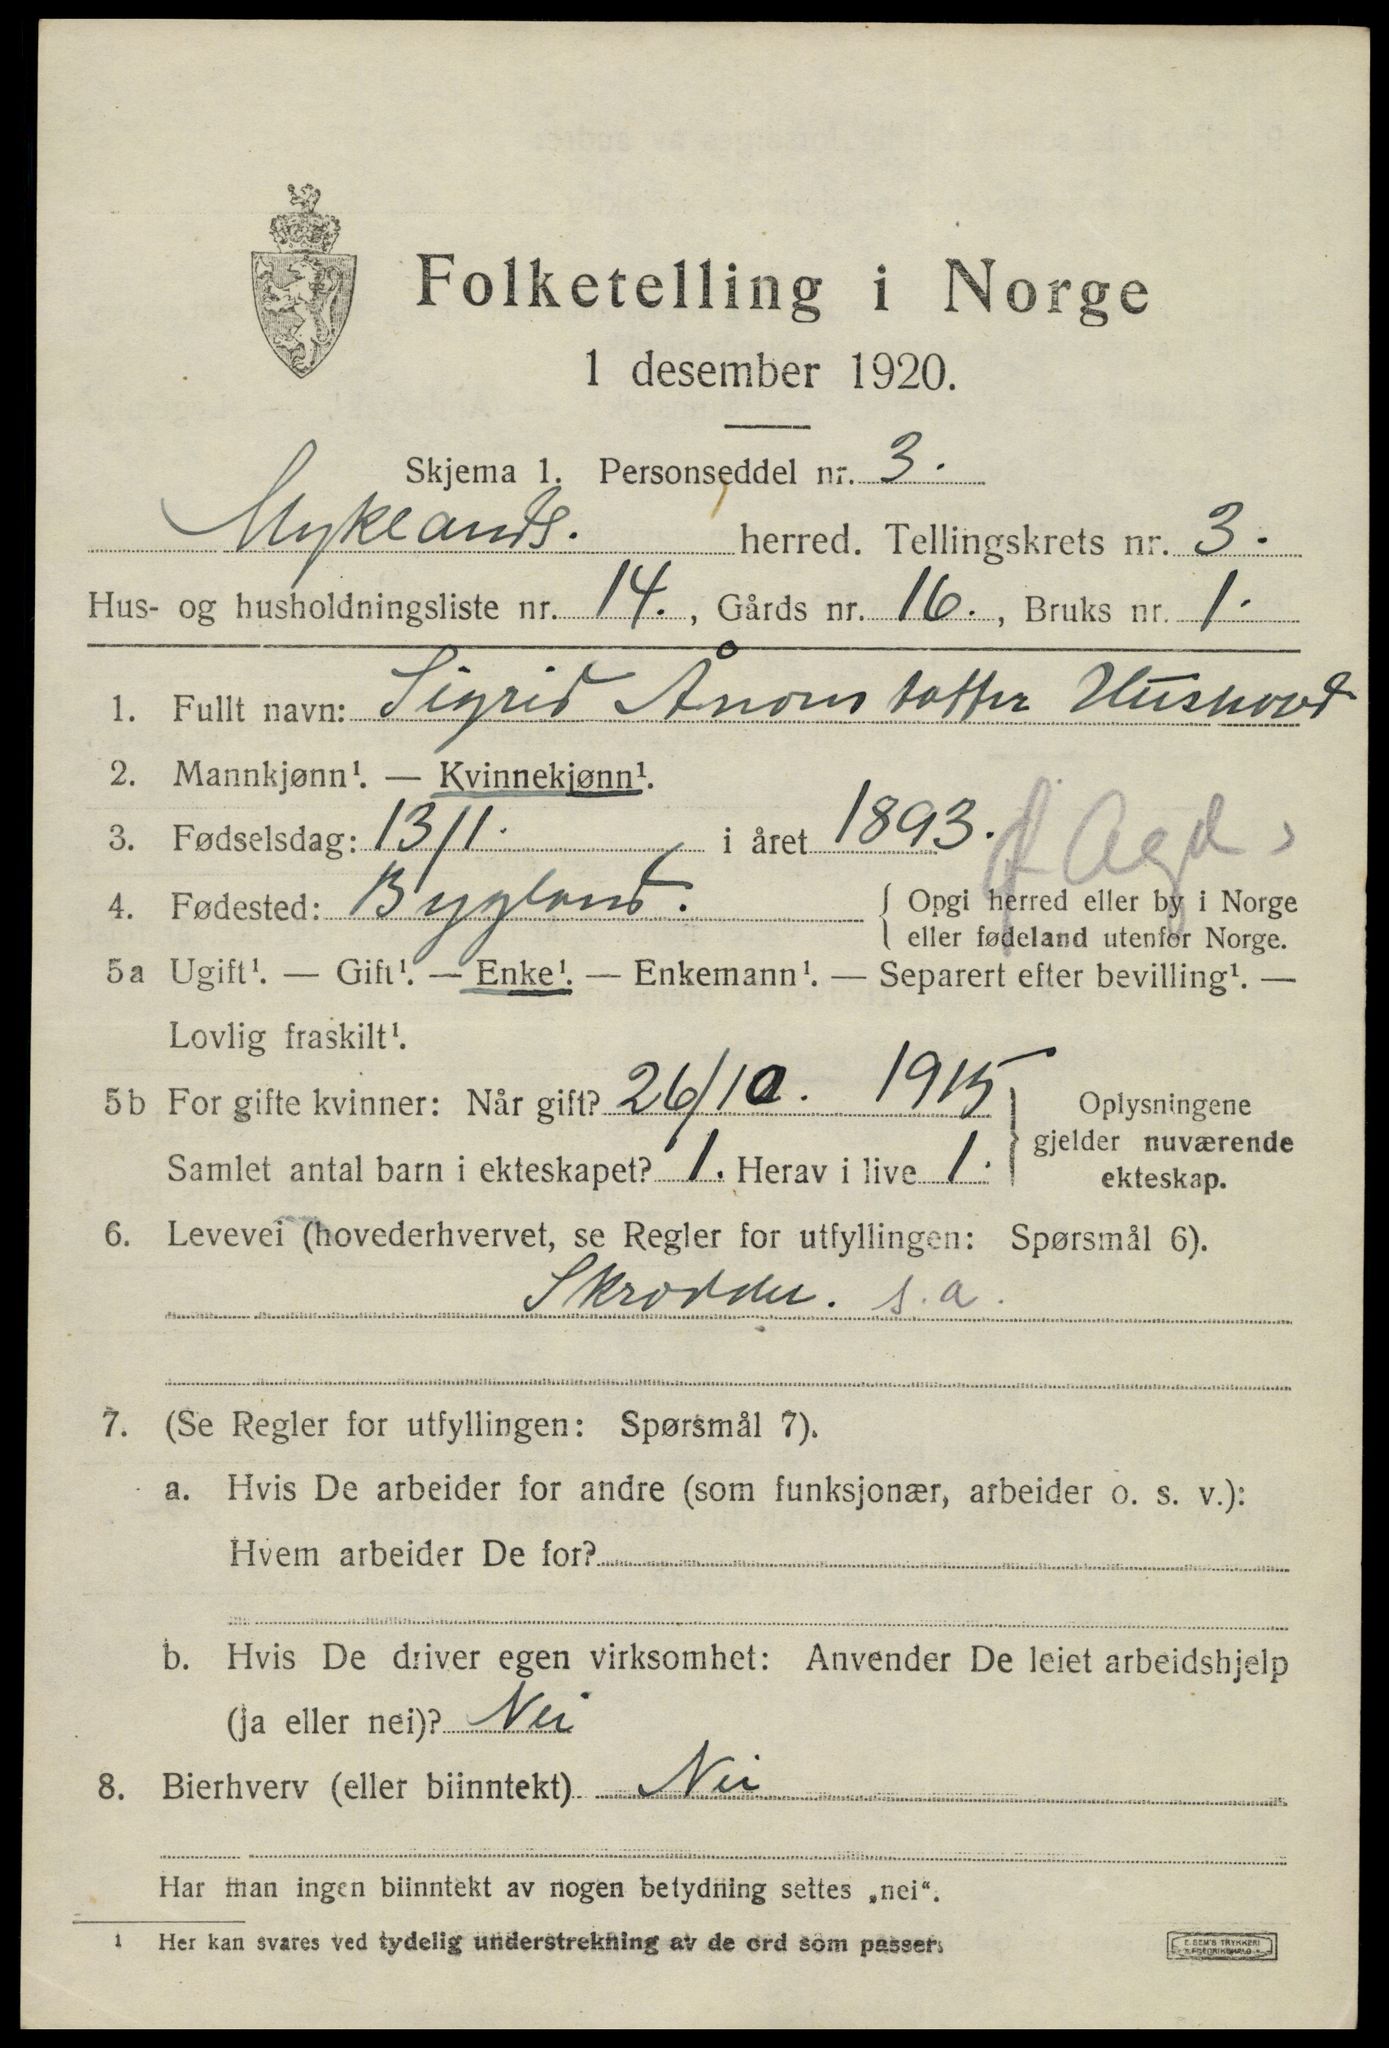 Folketelling i Norge
1 desember 1920.
Skjema 1. Personseddel nr. 3.
Myklands. herred. Tellingskrets nr. 3.
Hus- og husholdningsliste nr. 14., Gårds nr. 16., Bruks nr. 1.
1. Fullt navn: Sigrid Ånons datter Hushovd
2. Mannkjønn¹. — Kvinnekjønn¹.
3. Fødselsdag: 13/1. i året 1893.
4. Fødested: Bygland. { Opgi herred eller by i Norge
eller fødeland utenfor Norge.
Agd
5a Ugift¹. — Gift¹. — Enke¹. — Enkemann¹. — Separert efter bevilling¹. —
Lovlig fraskilt¹.
5b For gifte kvinner: Når gift? 26/10. 1915
Samlet antal barn i ekteskapet? 1. Herav i live 1.
Oplysningene
gjelder nuværende
ekteskap.
6. Levevei (hovederhvervet, se Regler for utfyllingen: Spørsmål 6).
Skrædder. s.a.
7. (Se Regler for utfyllingen: Spørsmål 7).
a. Hvis De arbeider for andre (som funksjonær, arbeider o. s. v.):
Hvem arbeider De for?
b. Hvis De driver egen virksomhet: Anvender De leiet arbeidshjelp
(ja eller nei)? Nei
8. Bierhverv (eller biinntekt) Nei
Har man ingen biinntekt av nogen betydning settes „nei“.
1 Her kan svares ved tydelig understrekning av de ord som passer.
E. SEM'S TRYKKERI
FREDRIKSHALD